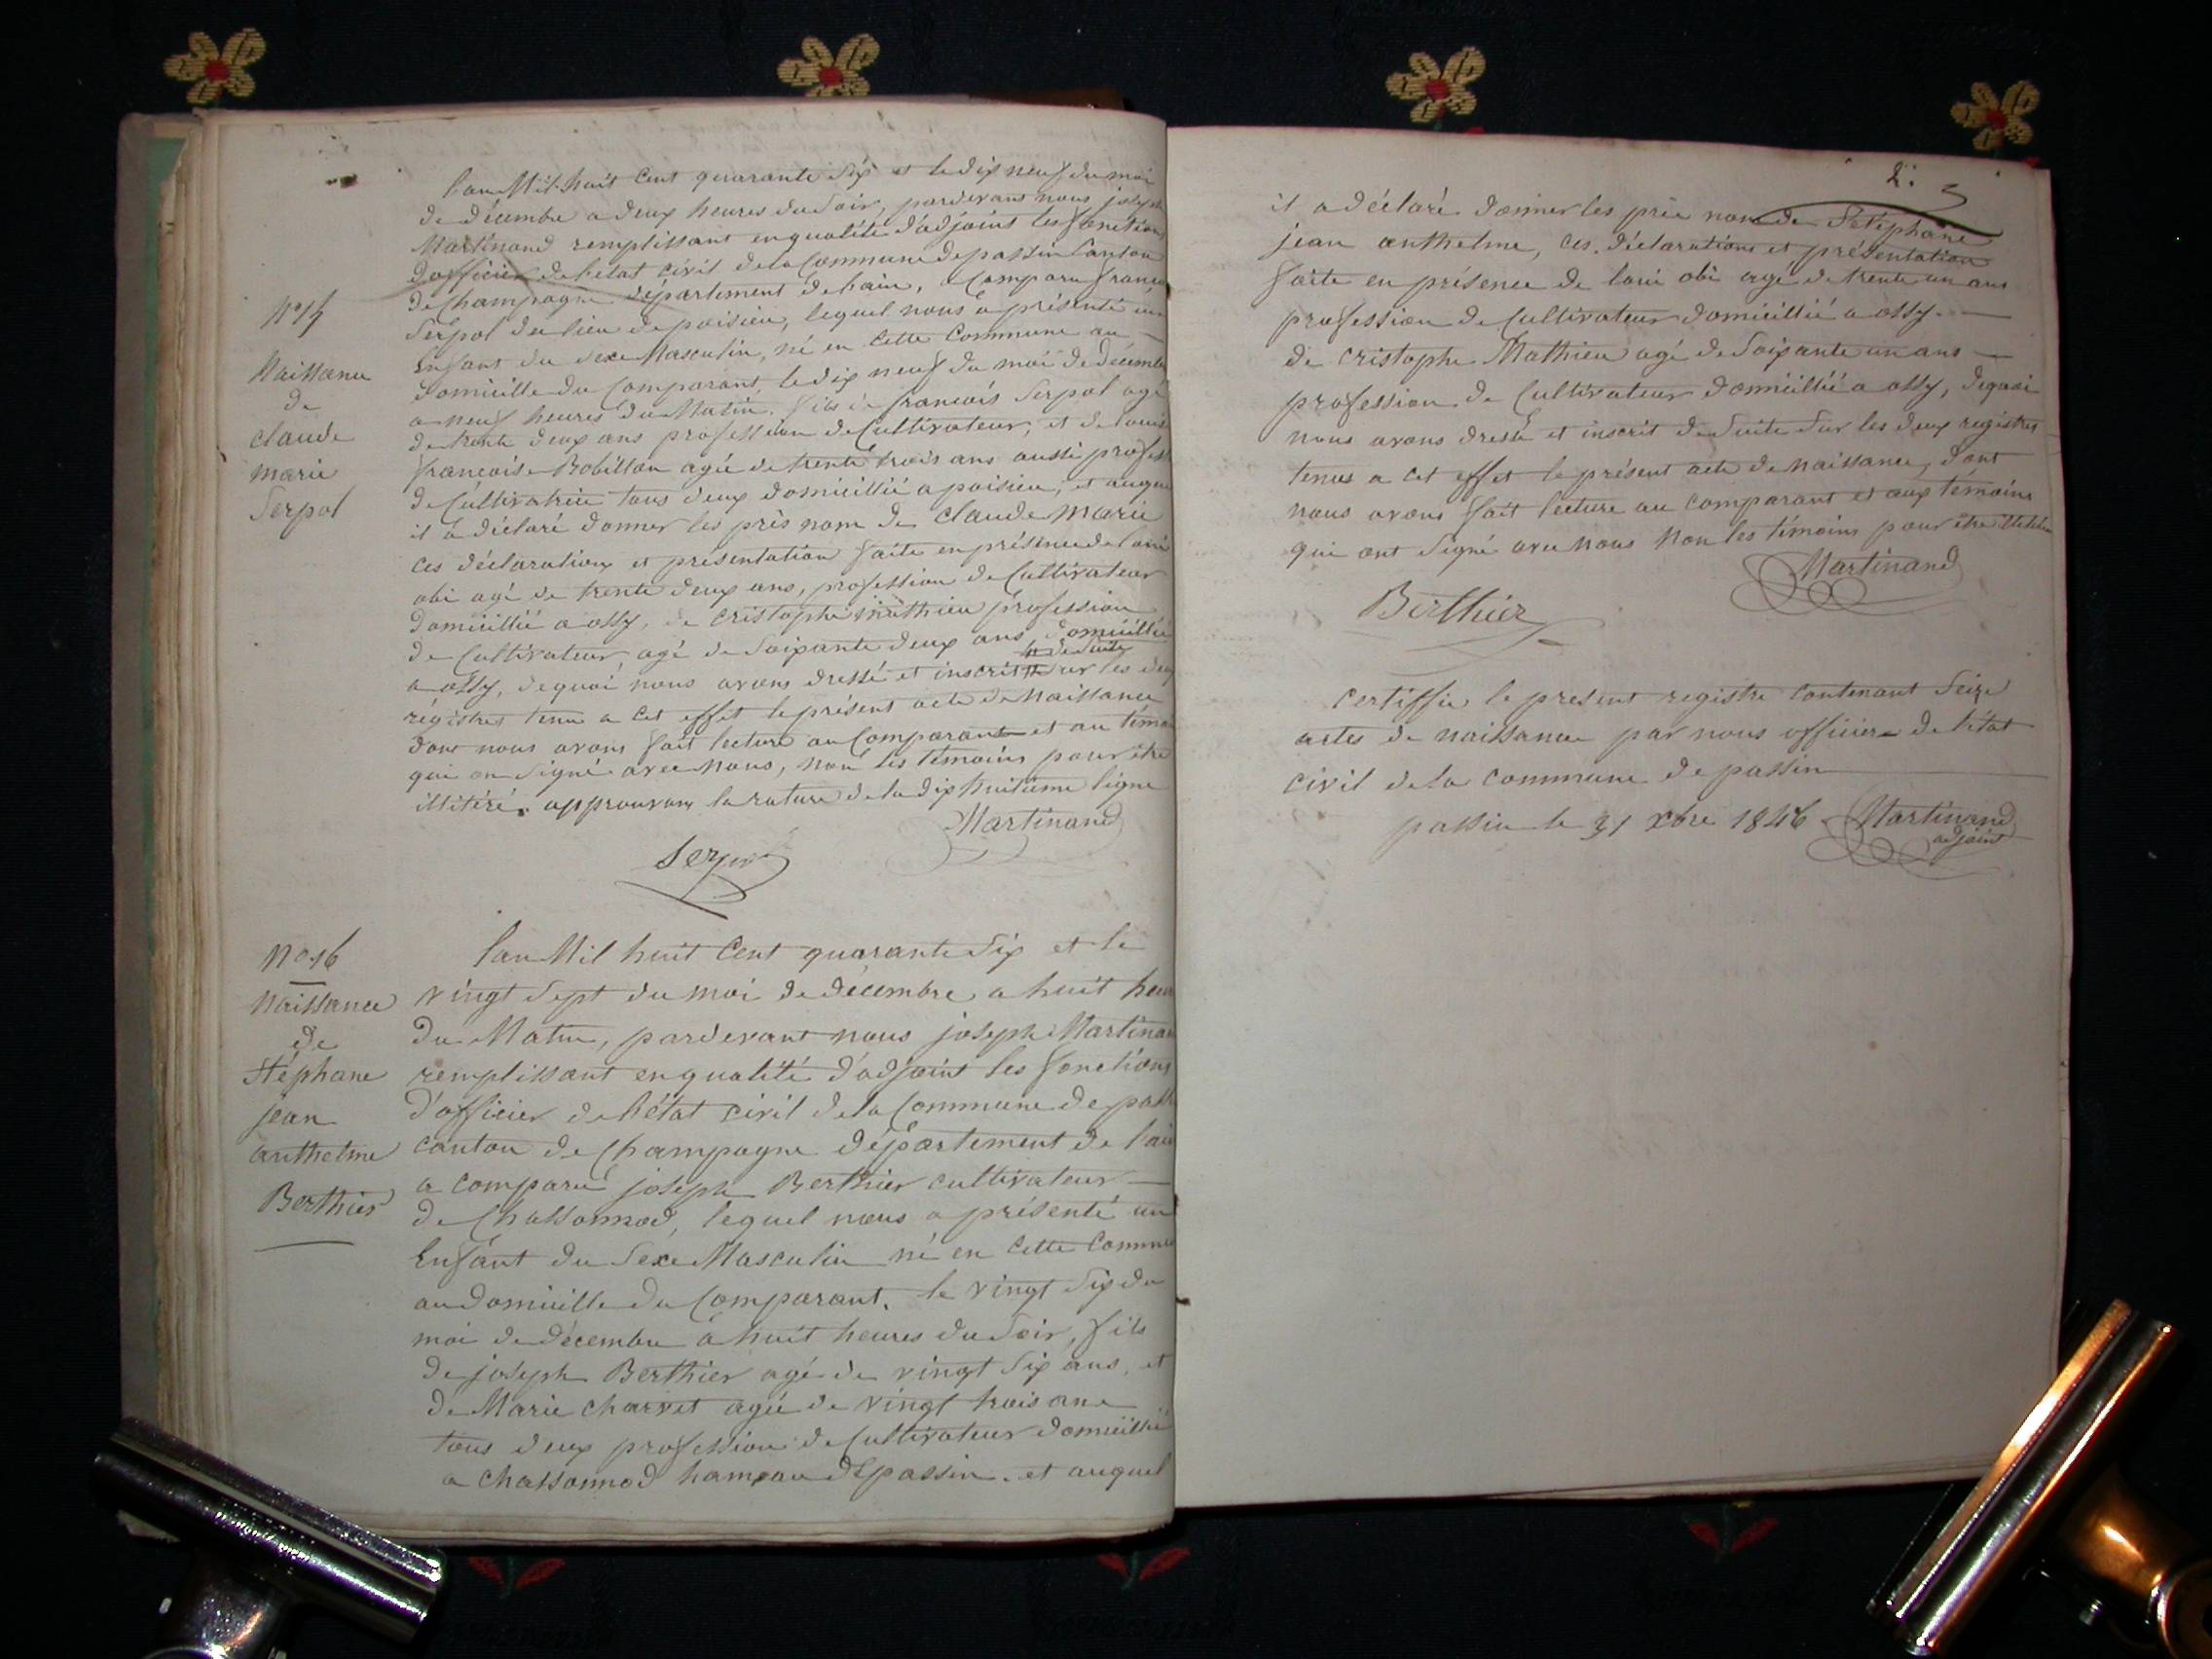 lan Mil huit Cent quarante Six et le dix neuf du moi
de décembre a deux heures du Soir, pardevant nous joseph
Martinand remplissant en qualité d'adjoint les fonctions
d'officier de l'etat civil de la Commune de passin Canton
de Champagne département de lain, a Comparu franc
Serpol du lieu de poisieu, lequel nous a présenté un
Enfant du Sexe Masculin, né en Cette Commune au
domicille du Comparant, le dix neuf du moi de décembre
a neuf heures du Matin. fils de francois Serpol agé
de trente deux ans profession de Cultivateur, et de louise
francoise Bobillon agée de trente trois ans aussi profess
de Cultivatrice tous deux domicillié a poisieu, et auquel
il a déclaré donner les prés nom de Claude Marie
Ces déclaration et présentation faite en présence de loui
obi agé de trente deux ans, profession de Cultivateur
domicillié a ossy, de Cristophe Mathieu profession
de Cultivateur, agé de Soixante deux ans, domicillié
de Suite
a ossy, de quoi nous avons dressé et inscrit Sur les deux
régistres tenu a Cet effet le présent acte de Naissance
dont nous avons fait lecture au Comparant et au témoi
qui on Signé avec Nous, Non les témoins pour être
illitéré. approuvons la rature de la dix huitième ligne
Martinand
Serpol
No 15
Naissance
de
Claude
Marie
Serpol
No 16
Naissance
de
Stéphane
jean
anthelme
Berthier
lan Mil huit Cent quarante Six et le
vingt Sept du moi de décembre a huit heur
du Matin, pardevant nous joseph Martinan
remplissant en qualité d'adjoint les fonctions
d'officier de l'état civil de la Commune de pass
canton de Champagne département de lain
a comparu joseph Berthier cultivateur
de Chassonnod, lequel nous a présenté un
Enfant du Sexe Masculin né en Cette Commune
au domicille du Comparant. le vingt Six du
moi de décembre a huit heures du Soir, fils
de joseph Berthier agé de vingt Six ans, et
de Marie Charvet agée de vingt trois ans
tous deux profession de Cultivateur domicillié
a Chassonnod hameau de passin. et auquel
2.
il a déclaré donner les prée nom de Stéphane
jean anthelme, ces déclarations et présentation
faite en présence de loui obi agé de trente un ans
profession de Cultivateur domicillié a ossy.
de Cristophe Mathieu agé de Soixante un ans
profession de Cultivateur domicillié a ossy, de quoi
nous avons dressé et inscrit de Suite Sur les deux registres
tenus a Cet effet le présent acte de Naissance, dont
nous avons fait lecture au Comparant et aux temoins
qui ont Signé avec Nous Non les témoins pour être
Martinand
Berthier
Certiffié le present registre Contenant Seize
actes de naissance par nous officier de l'état
civil de la Commune de passin
passin le 31 Xbre 1846 Martinand
adjoint